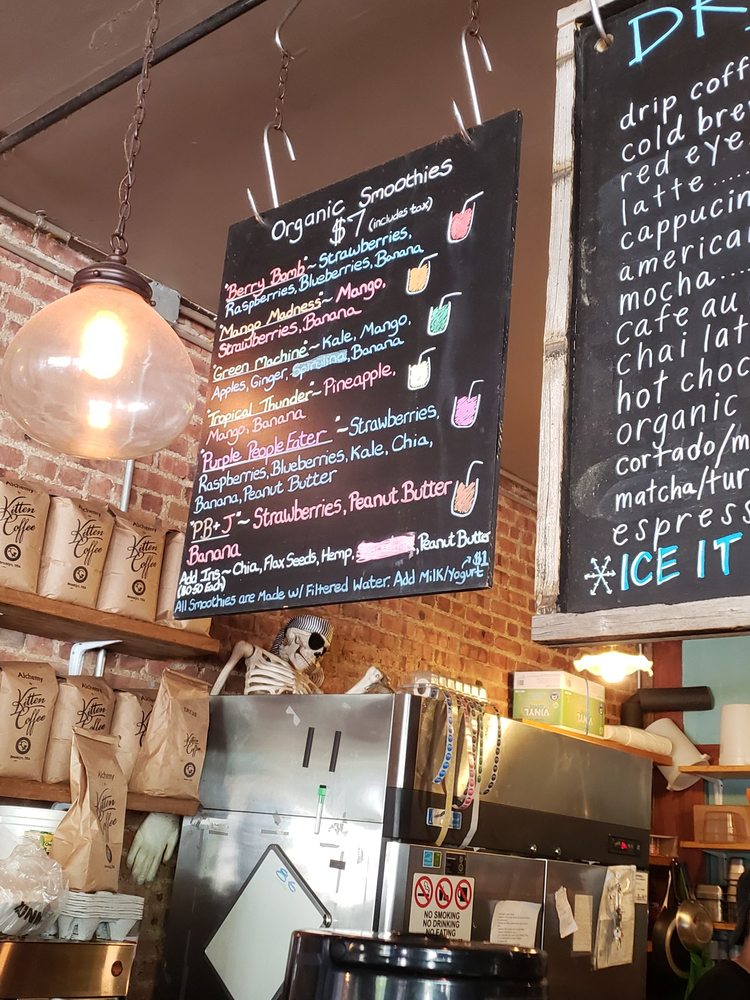 Organic Smoothies
$7 (includes tax)
"Berry Bomb" ~ Strawberries,
Raspberries, Blueberries, Banana
"Mango Madness ~ Mango,
Strawberries, Banana
"Green Machine" ~ Kale, Mango,
Apples, Ginger, Spirulina, Banana
"Tropical Thunder" ~ Pineapple,
Mango, Banana
"Purple People Eater" ~ Strawberries,
Raspberries, Blueberries, Kale, Chia,
Banana, Peanut Butter
"P.B + J" ~ Strawberries, Peanut Butter
Banana
Add Ins ~ Chia, Flax Seeds, Hemp, , Peanut Butter
($0.50 Each)
All Smoothies are Made w/ Filtered Water. Add Milk/Yogurt $1
DR
drip coff
cold bre
red eye
latte.....
cappucin
american
mocha...
cafe au
chai lat
hot choc
organic
cortado/m
matcha/tur
espress
ICE IT
Alchemy
Kitten
Coffee
Alchemy
Kitten
Coffee
Alchemy
Kitten
Coffee
Alchemy
Kitten
Coffee
Alchemy
Kitten
Coffee
Kitten
Coffee
Alchemy
Kitten
Coffee
VINYL
NO SMOKING
NO DRINKING
NO EATING